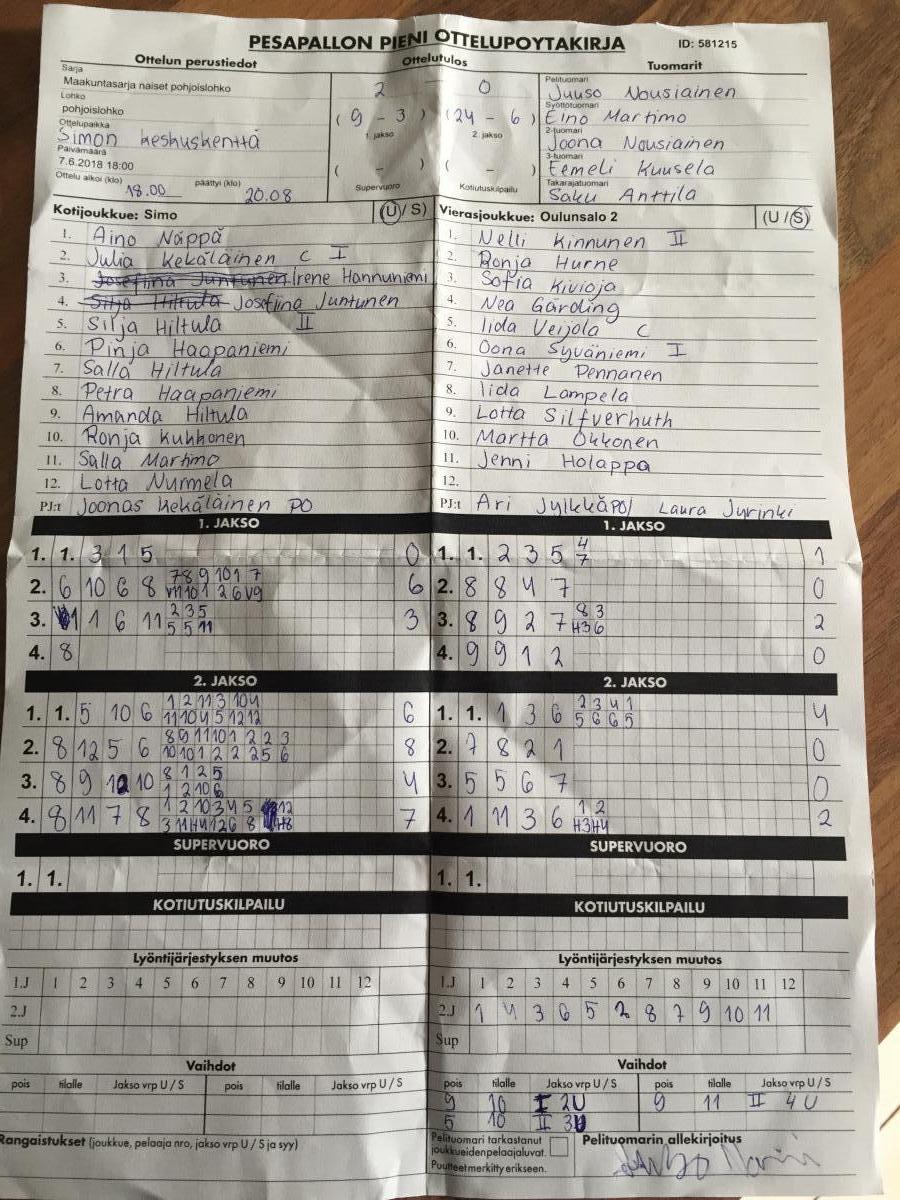 PESAPALLON PIENI OTTELUPOYTAKIRJA
ID: 581215
Ottelun perustiedot
Sarja
Maakuntasarja naiset pohjoislohko
Lohko
pohjoislohko
Ottelupaikka
Simon keskuskenttä
Päivämäärä
7.6.2018 18:00
Ottelu alkoi (klo) 18.00 päättyi (klo) 20.08
Ottelutulos
2 - 0
(9 - 3) (24 - 6)
1. jakso 2. jakso
( - ) ( - )
Supervuoro Kotiutuskilpailu
Tuomarit
Pelituomari
Juuso Nousiainen
Syöttötuomari
Eino Martimo
2-tuomari
Joona Nousiainen
3-tuomari
Eemeli Kuusela
Takarajatuomari
Saku Anttila
Kotijoukkue: Simo (U/S)
1. Aino Näppä
2. Julia Kekäläinen C I
3. Josefiina Juntunen Irene Hannuniemi
4. Silja Hiltula Josefiina Juntunen
5. Silja Hiltula II
6. Pinja Haapaniemi
7. Salla Hiltula
8. Petra Haapaniemi
9. Amanda Hiltula
10. Ronja Kukkonen
11. Salla Martimo
12. Lotta Nurmela
PJ:t Joonas Kekäläinen PO
Vierasjoukkue: Oulunsalo 2 (U/S)
1. Nelli Kinnunen II
2. Ronja Hurne
3. Sofia Kivioja
4. Nea Gärding
5. Iida Veijola C
6. Oona Syväniemi I
7. Janette Pennanen
8. Iida Lampela
9. Lotta Silfverhuth
10. Martta Okkonen
11. Jenni Holappa
12.
PJ:t Ari Jylkkä PO/ Laura Jyrinki
1. JAKSO
1. 1. 3 1 5 0
2. 6 10 6 8 7 8 9 10 1 7 6
V11 10 1 2 6 V9
3. 1 6 11 2 3 5 3
5 5 11
4. 8
2. JAKSO
1. 1. 5 10 6 1 2 11 3 10 4 6
11 10 4 5 12 12
2. 8 12 5 6 8 9 11 10 1 2 2 3 8
10 10 1 2 2 2 5 6
3. 8 9 10 8 1 2 5 4
1 2 10 6
4. 8 11 7 8 1 2 10 3 4 5 12 7
3 11 H4 12 6 8 H8
SUPERVUORO
1. 1.
KOTIUTUSKILPAILU
Lyöntijärjestyksen muutos
1.J 1 2 3 4 5 6 7 8 9 10 11 12
2.J
Sup
Vaihdot
pois tilalle Jakso vrp U / S pois tilalle Jakso vrp U / S
Rangaistukset (joukkue, pelaaja nro, jakso vrp U / S ja syy)
1. JAKSO
1. 1. 2 3 5 4 1
7
2. 8 8 4 7 0
3. 8 9 2 7 8 3 2
H3 6
4. 9 9 1 2 0
2. JAKSO
1. 1. 1 3 6 2 3 4 1 4
5 6 6 5
2. 7 8 2 1 0
3. 5 5 6 7 0
4. 1 11 3 6 1 2 2
H3 H4
SUPERVUORO
1. 1.
KOTIUTUSKILPAILU
Lyöntijärjestyksen muutos
1.J 1 2 3 4 5 6 7 8 9 10 11 12
2.J 1 4 3 6 5 2 8 7 9 10 11
Sup
Vaihdot
pois tilalle Jakso vrp U / S pois tilalle Jakso vrp U / S
9 10 I 2U 9 11 II 4U
5 10 II 3U
Pelituomari tarkastanut
joukkueiden pelaajaluvat.
Puutteet merkitty erikseen.
Pelituomarin allekirjoitus